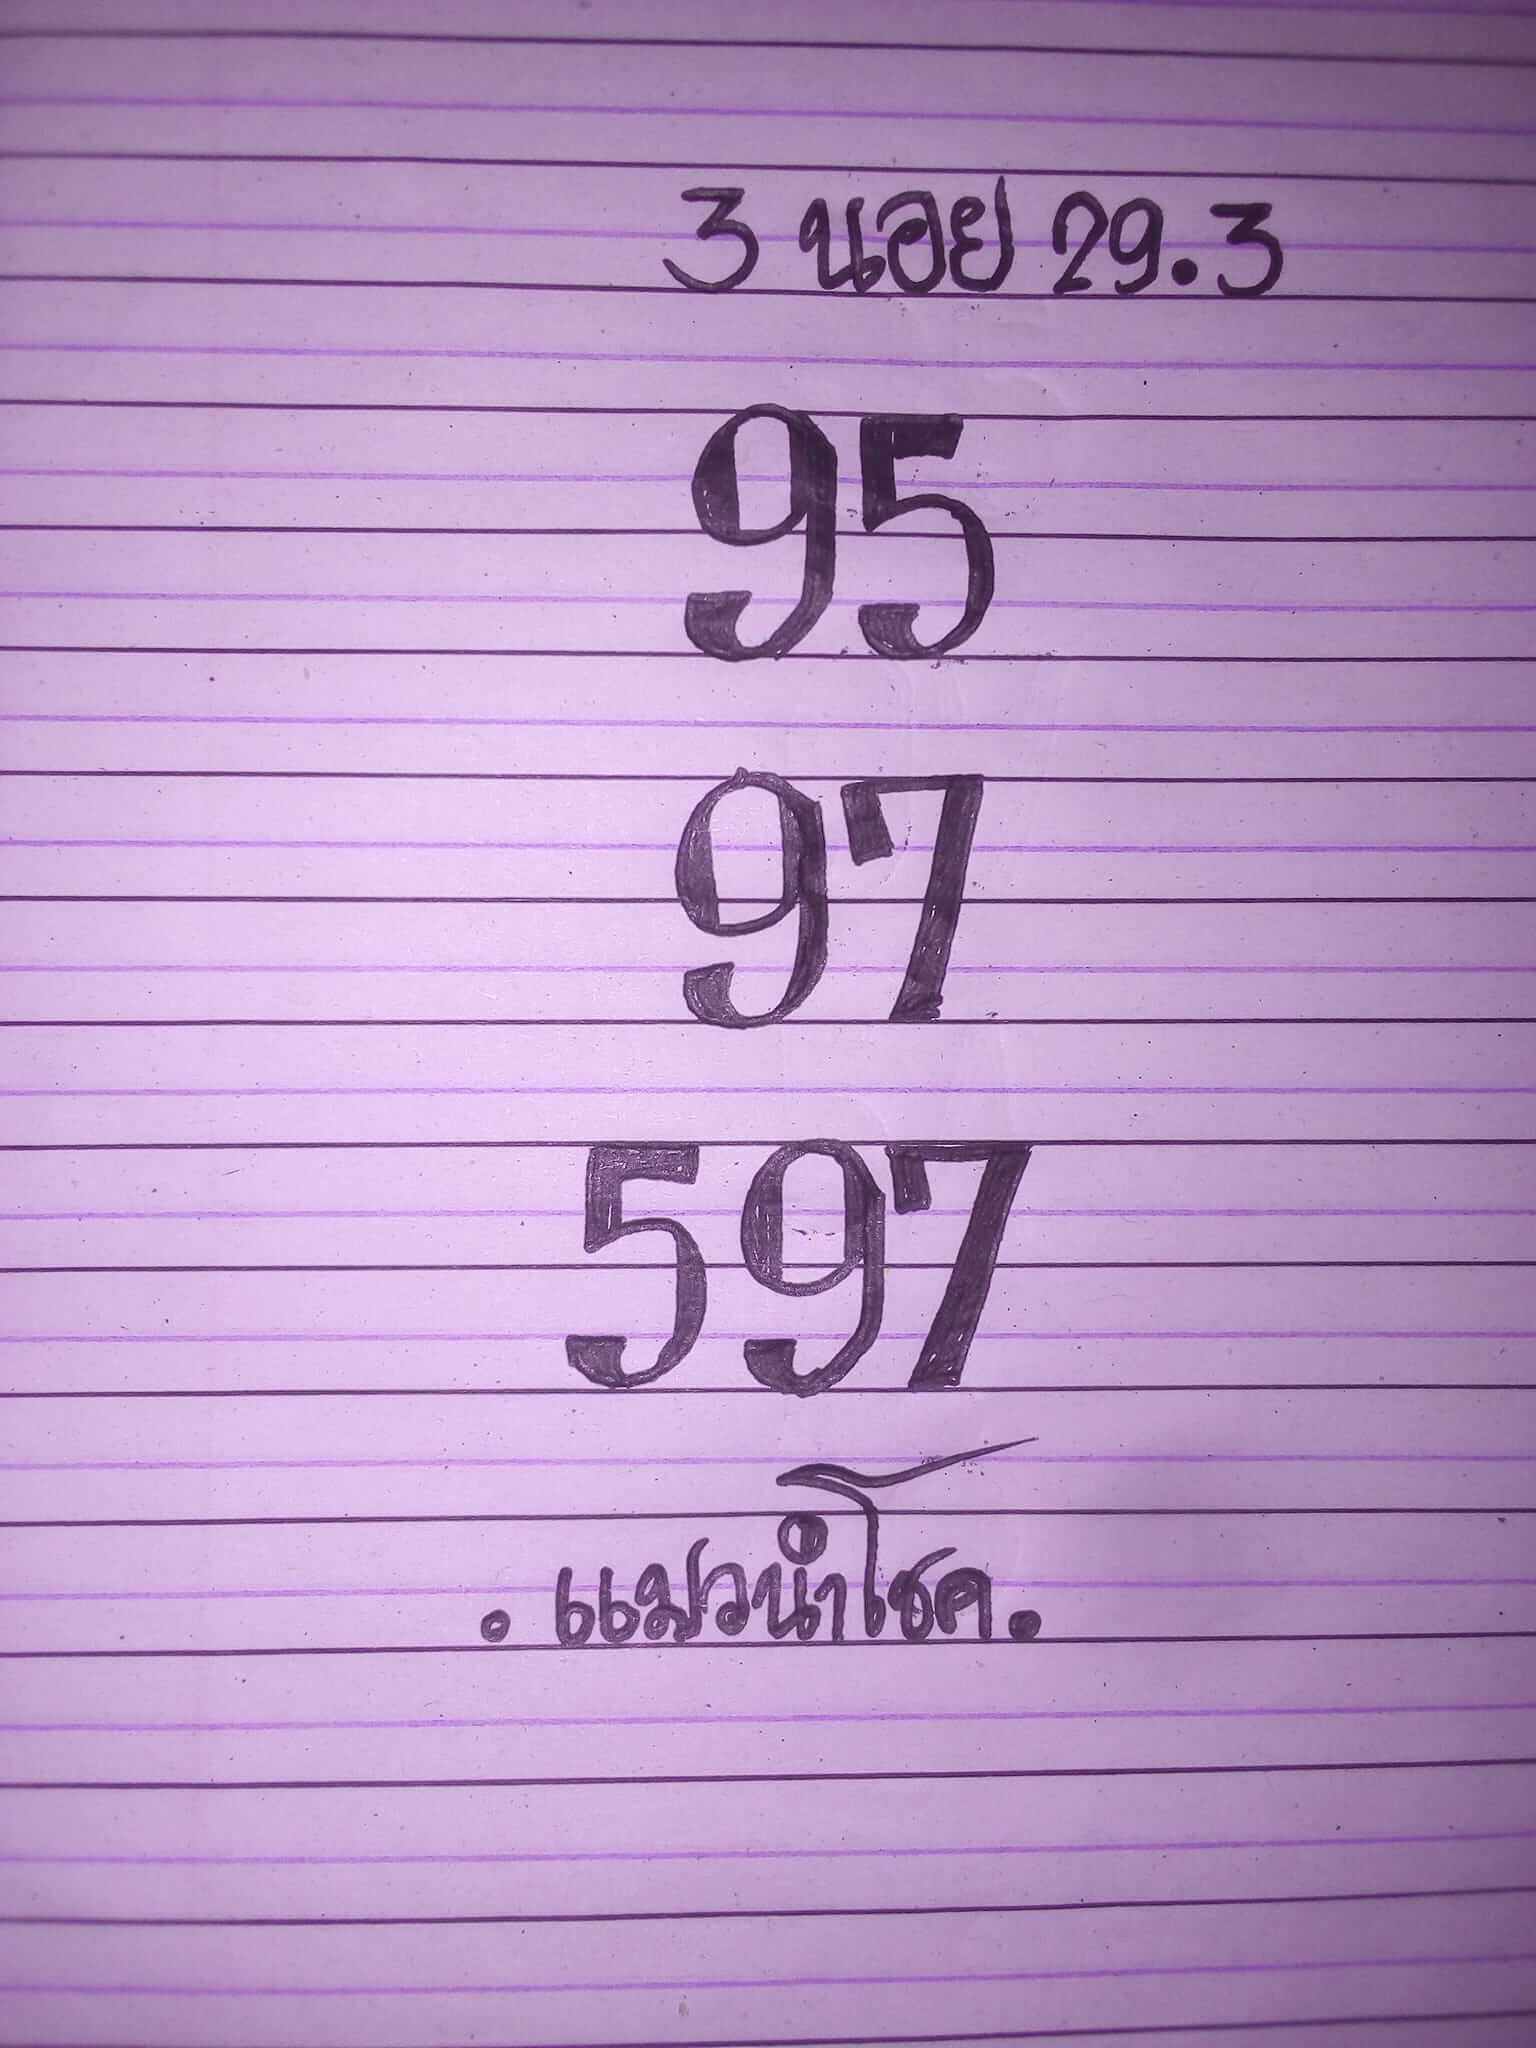 3 นอย 29.3
95
97
597
. แมวนำโชค.